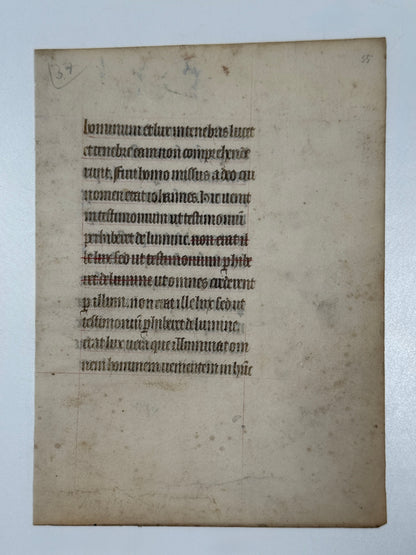 37
55
hominum et lux in tenebras lucet
et tenebre eam non comprehende
runt. Fuit homo missus a deo cui
nomen erat iohannes. Hic uenit
in testimonium ut testimoniū
perhiberet de lumine. non erat il
le lux sed ut testimonium phibe
ret de lumine ut omnes crederent
p illum. non erat ille lux sed ut
testimoniū phiberet de lumine.
erat lux uera que illuminat om
nem hominem uenientem in hūc